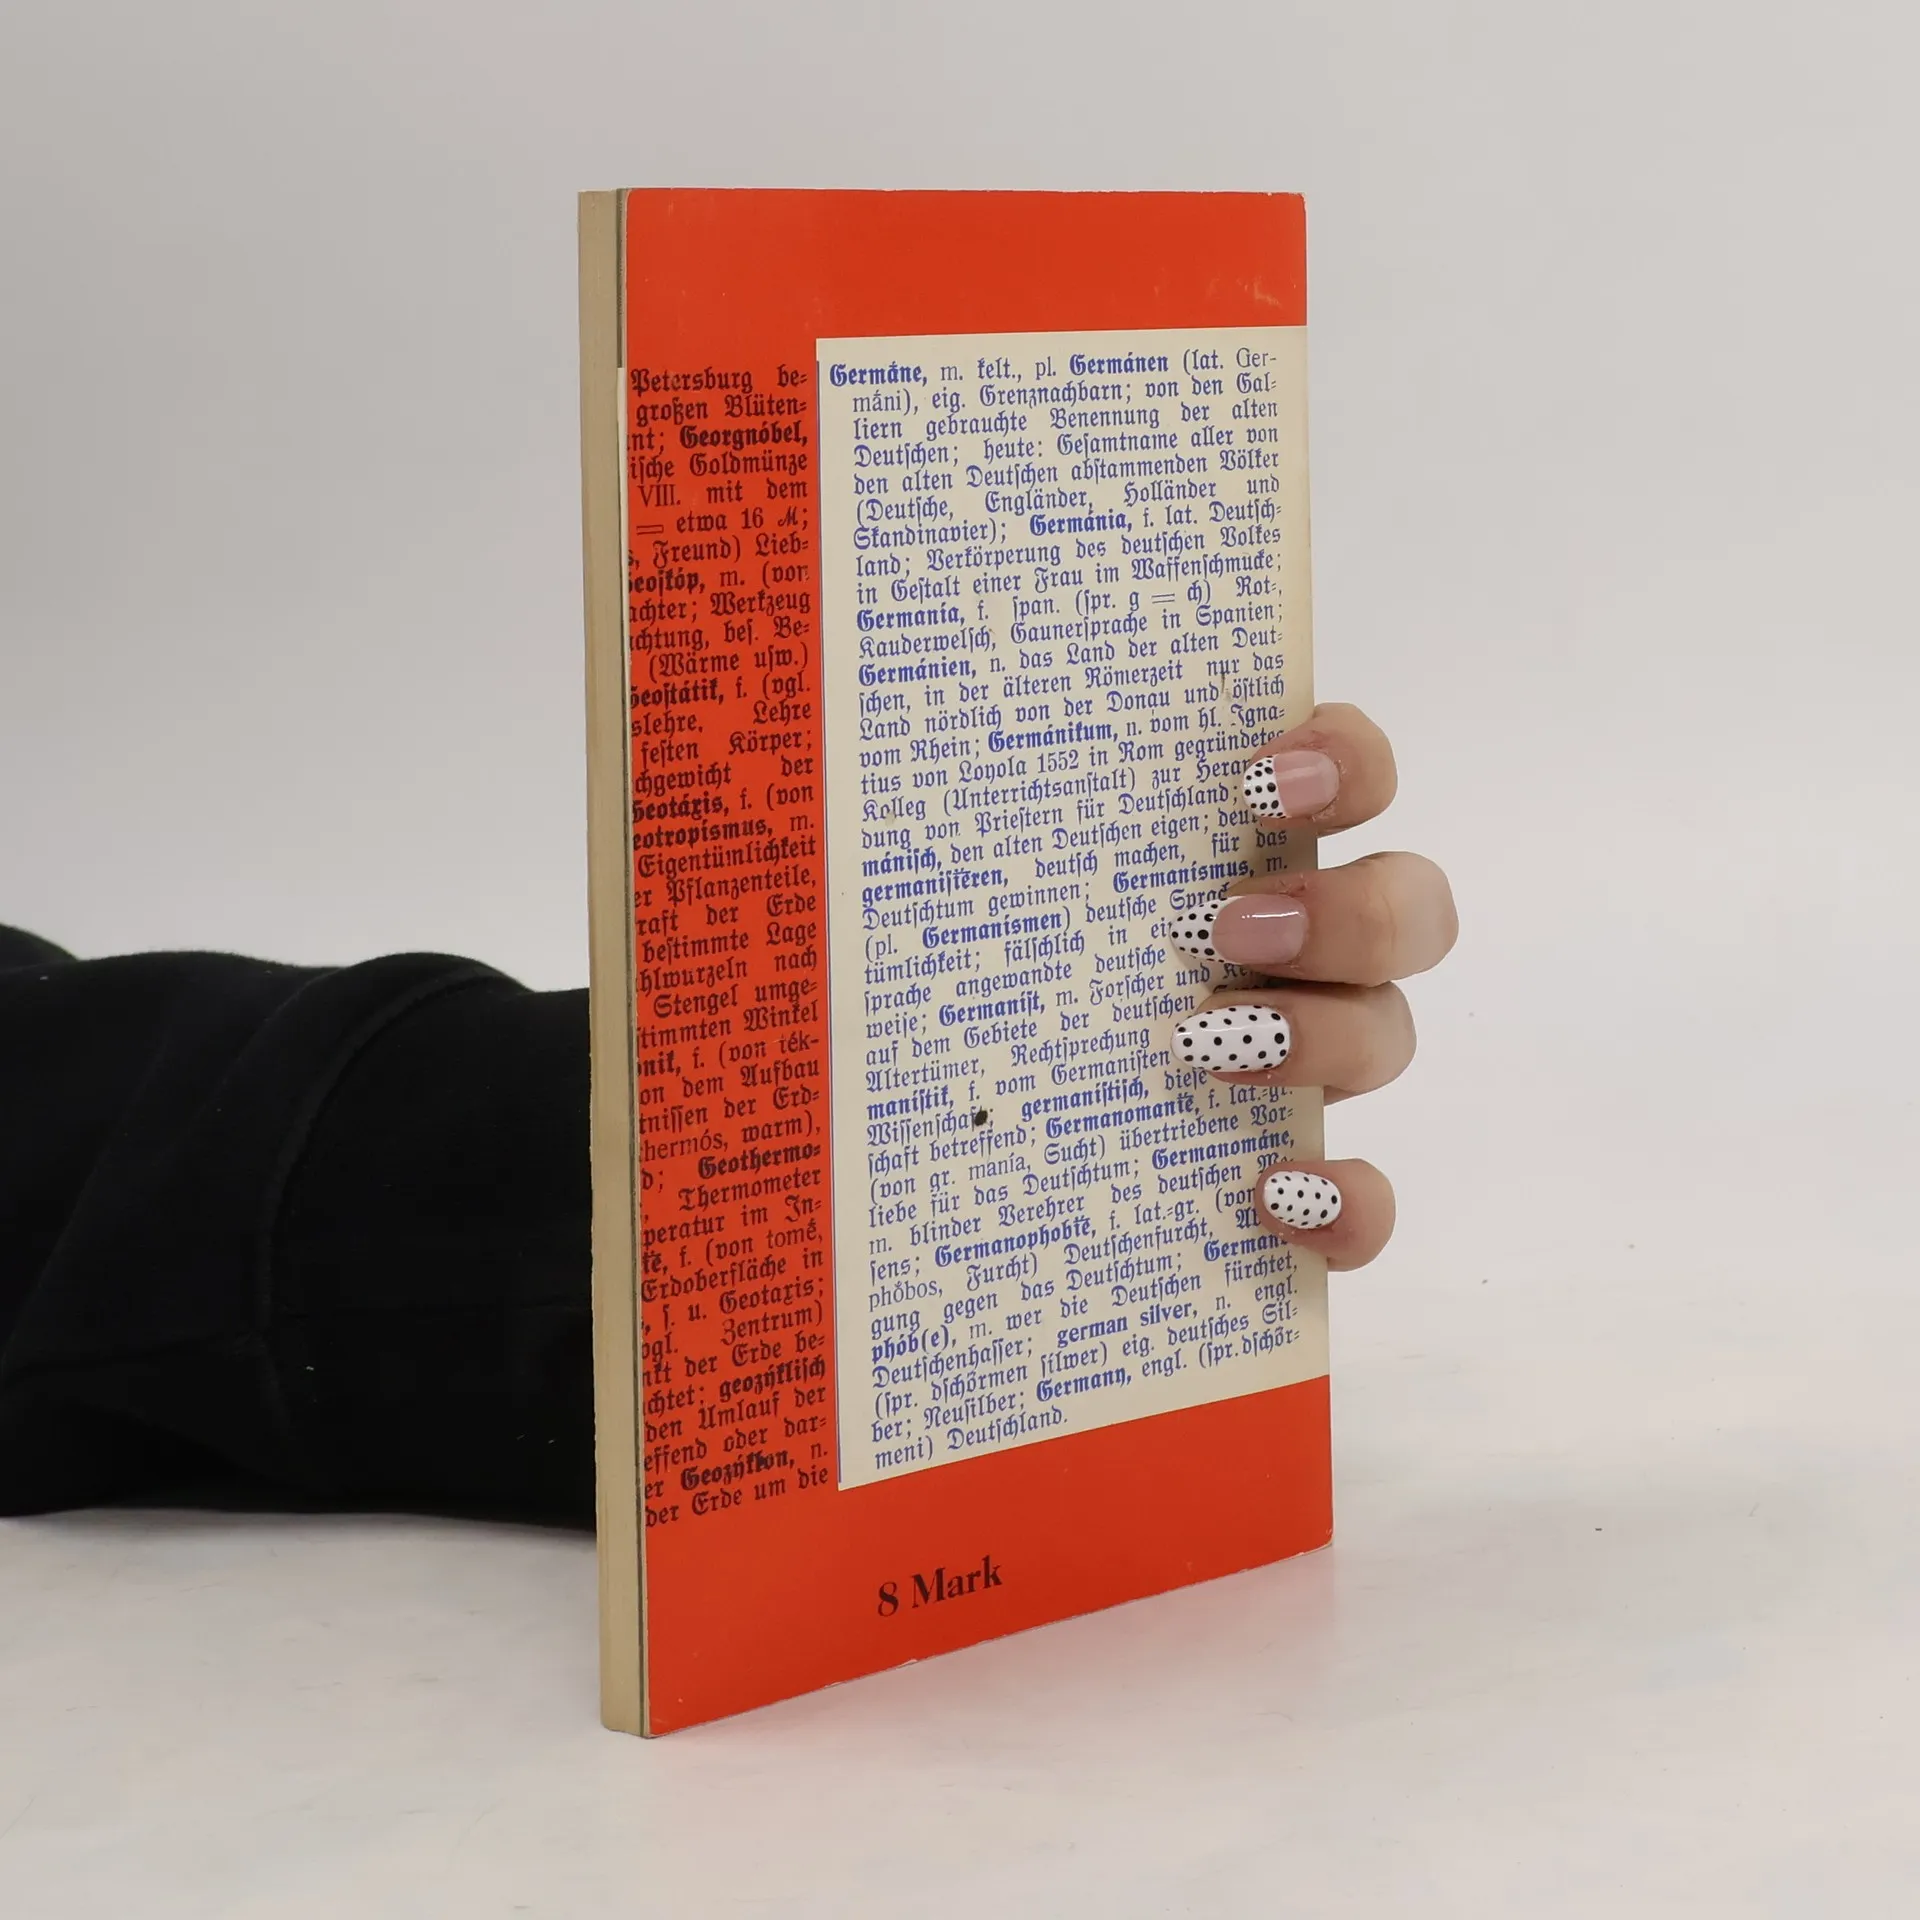 Petersburg be-
großen Blüten-
nt; Georgnóbel,
ische Goldmünze
VIII. mit dem
= etwa 16 ℳ;
s, Freund) Lieb-
Geoſkóp, m. (von
achter; Werkzeug
chtung, beſ. Be-
(Wärme uſw.)
Geoſtátik, f. (vgl.
slehre, Lehre
feſten Körper;
chgewicht der
Geotáxis, f. (von
eotropísmus, m.
Eigentümlichkeit
er Pflanzenteile,
raft der Erde
beſtimmte Lage
hlwurzeln nach
Stengel umge-
ſtimmten Winkel
onik, f. (von ték-
on dem Aufbau
tniſſen der Erd-
hermós, warm),
d; Geothermo-
, Thermometer
peratur im In-
ie, f. (von tomé,
Erdoberfläche in
, ſ. u. Geotaxis;
ogl. Zentrum)
nkt der Erde be-
chtet; geozýkliſch
den Umlauf der
effend oder dar-
er Geozýklon, n.
der Erde um die
Germáne, m. kelt., pl. Germánen (lat. Ger-
máni), eig. Grenznachbarn; von den Gal-
liern gebrauchte Benennung der alten
Deutſchen; heute: Geſamtname aller von
den alten Deutſchen abſtammenden Völker
(Deutſche, Engländer, Holländer und
Skandinavier); Germánia, f. lat. Deutſch-
land; Verkörperung des deutſchen Volkes
in Geſtalt einer Frau im Waffenſchmucke;
Germanía, f. ſpan. (ſpr. g = ch) Rot-,
Kauderwelſch, Gaunerſprache in Spanien;
Germánien, n. das Land der alten Deut-
ſchen, in der älteren Römerzeit nur das
Land nördlich von der Donau und öſtlich
vom Rhein; Germánikum, n. vom hl. Igna-
tius von Loyola 1552 in Rom gegründetes
Kolleg (Unterrichtsanſtalt) zur Heran
dung von Prieſtern für Deutſchland;
mániſch, den alten Deutſchen eigen; deut
germaniſieren, deutſch machen, für das
Deutſchtum gewinnen; Germanísmus, m.
(pl. Germanísmen) deutſche Sprach
tümlichkeit; fälſchlich in ei
ſprache angewandte deutſche
weiſe; Germaniſt, m. Forſcher und
auf dem Gebiete der deutſchen
Altertümer, Rechtſprechung
maniſtik, f. vom Germaniſten
Wiſſenſchaft; germaniſtiſch, dieſe
ſchaft betreffend; Germanomanie, f. lat.-gr.
(von gr. manía, Sucht) übertriebene Vor-
liebe für das Deutſchtum; Germanománe,
m. blinder Verehrer des deutſchen We-
ſens; Germanophobie, f. lat.-gr. (von
phóbos, Furcht) Deutſchenfurcht, Ab
gung gegen das Deutſchtum; Germano-
phób(e), m. wer die Deutſchen fürchtet,
Deutſchenhaſſer; german silver, n. engl.
(ſpr. dſchörmen ſilwer) eig. deutſches Sil-
ber; Neuſilber; Germany, engl. (ſpr. dſchör-
meni) Deutſchland.
8 Mark